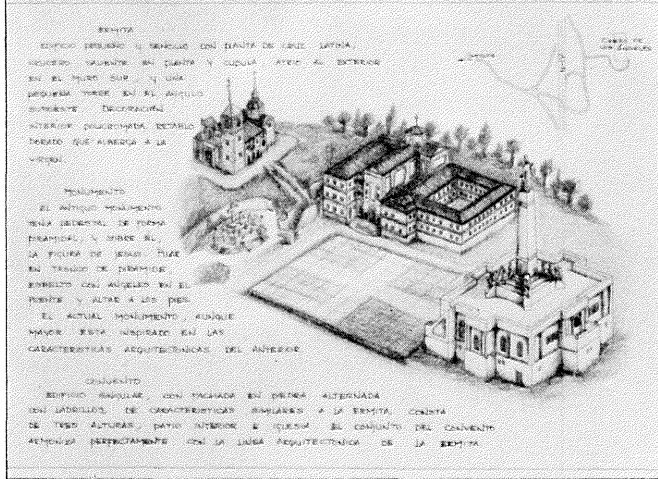 ERMITA
EDIFICIO PEQUEÑO Y SENCILLO CON PLANTA DE CRUZ LATINA,
CRUCERO SALIENTE EN PLANTA Y CUPULA ATRIO AL EXTERIOR
EN EL MURO SUR Y UNA
PEQUEÑA TORRE EN EL ANGULO
SUROESTE DECORACIÓN
INTERIOR POLICROMADA, RETABLO
DORADO QUE ALBERGA A LA
VIRGEN
CERRO DE
LOS ÁNGELES
MONUMENTO
EL ANTIGUO MONUMENTO
TENIA PEDESTAL DE FORMA
PIRAMIDAL, Y SOBRE EL
LA FIGURA DE JESUS
EN TRONCO DE PIRAMIDE
ESBELTO CON ANGELES EN EL
FRENTE Y ALTAR A LOS PIES
EL ACTUAL MONUMENTO, AUNQUE
MAYOR ESTA INSPIRADO EN LAS
CARACTERISTICAS ARQUITECTONICAS DEL ANTERIOR
CONVENTO
EDIFICIO SINGULAR, CON FACHADA EN PIEDRA ALTERNADA
CON LADRILLOS, DE CARACTERISTICAS SIMILARES A LA ERMITA, CONSTA
DE TRES ALTURAS, PATIO INTERIOR E IGLESIA EL CONJUNTO DEL CONVENTO
ARMONIZA PERFECTAMENTE CON LA LINEA ARQUITECTONICA DE LA ERMITA